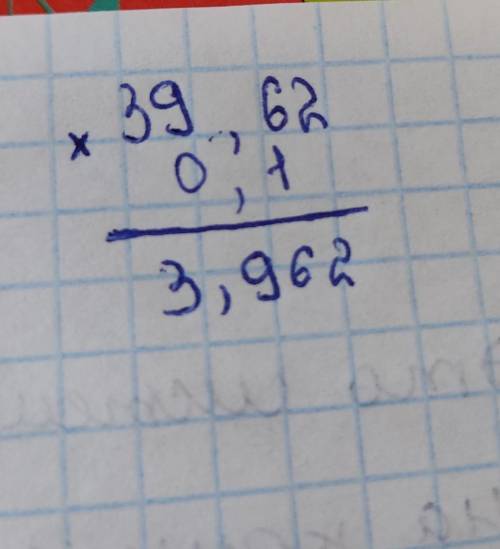 × 39,62
0,1
3,962